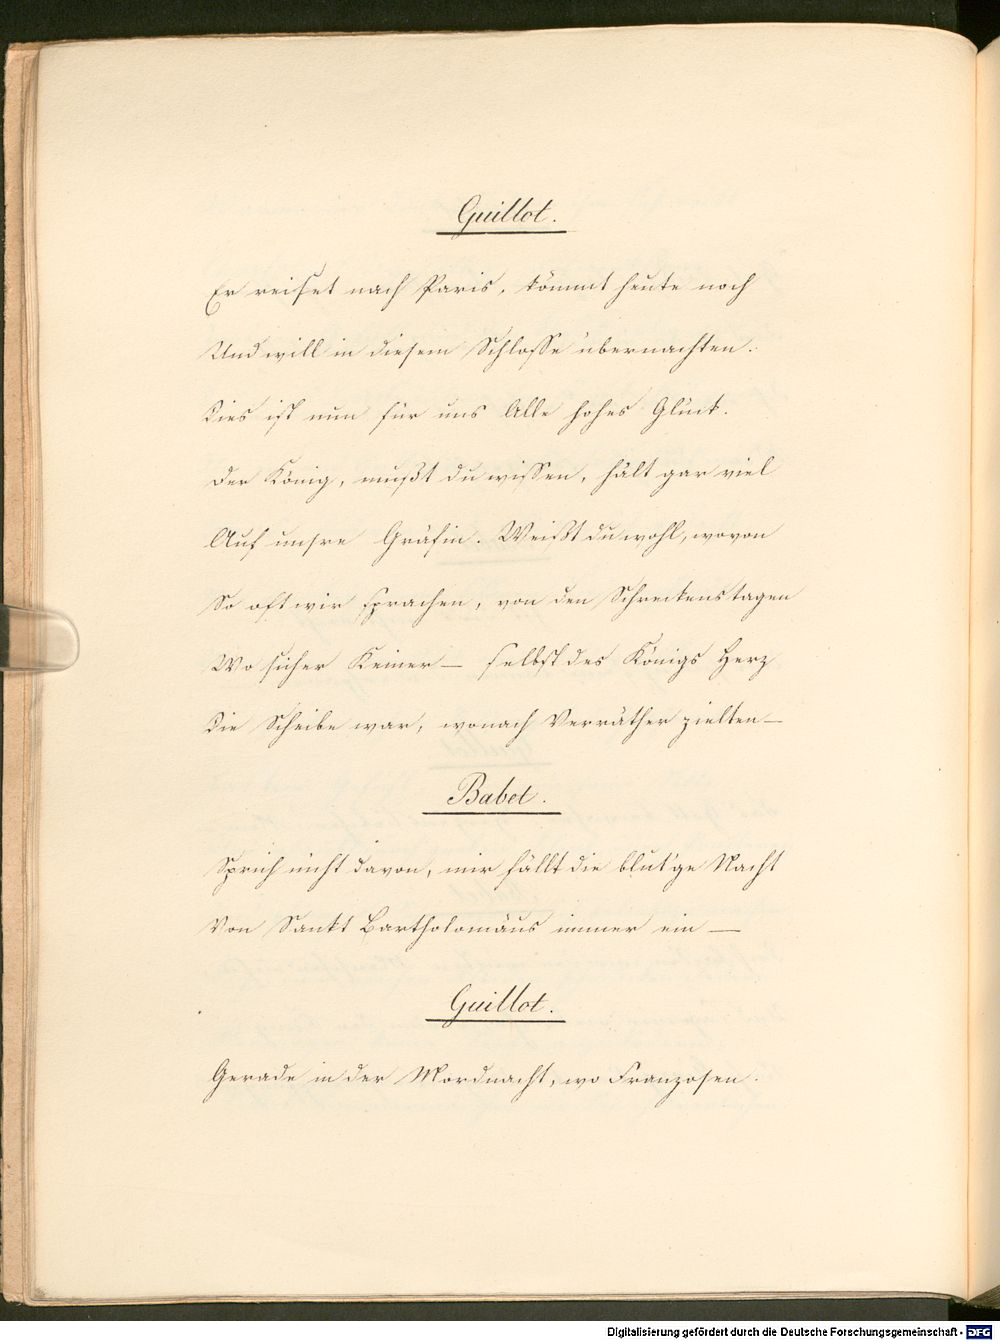 Guillot.
Er reiset nach Paris, kömmt heute noch
Und will in diesem Schlosse übernachten.
Dies ist nun für uns Alle hohes Glück.
Der König, mußt du wissen, hält gar viel
Auf unsre Gräfin. Weißt du wohl, wovon
So oft wir sprachen, von den Schreckenstagen
Wo sicher Keiner — selbst des Königs Herz
Die Scheibe war, wonach Verräther zielten —
Babet.
Sprich nicht davon, mir fällt die blut'ge Nacht
Von Sankt Bartholomäus immer ein —
Guillot.
Gerade in der Mordnacht, wo Franzosen.
Digitalisierung gefördert durch die Deutsche Forschungsgemeinschaft - DFG